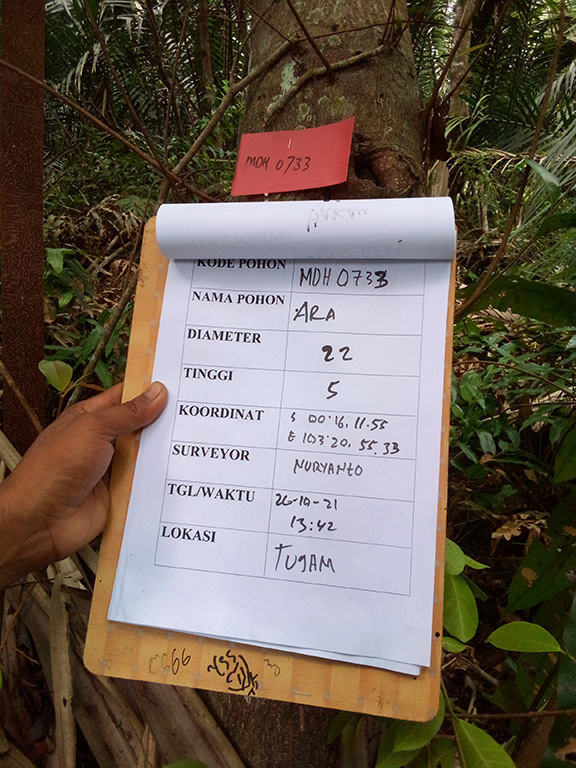 MDH 0733
KODE POHON MDH 0733
NAMA POHON ARA
DIAMETER 22
TINGGI 5
KOORDINAT S 00°16, 11.55
E 103°20, 55.33
SURVEYOR NURYANTO
TGL/WAKTU 26-10-21
13:42
LOKASI TUGAM